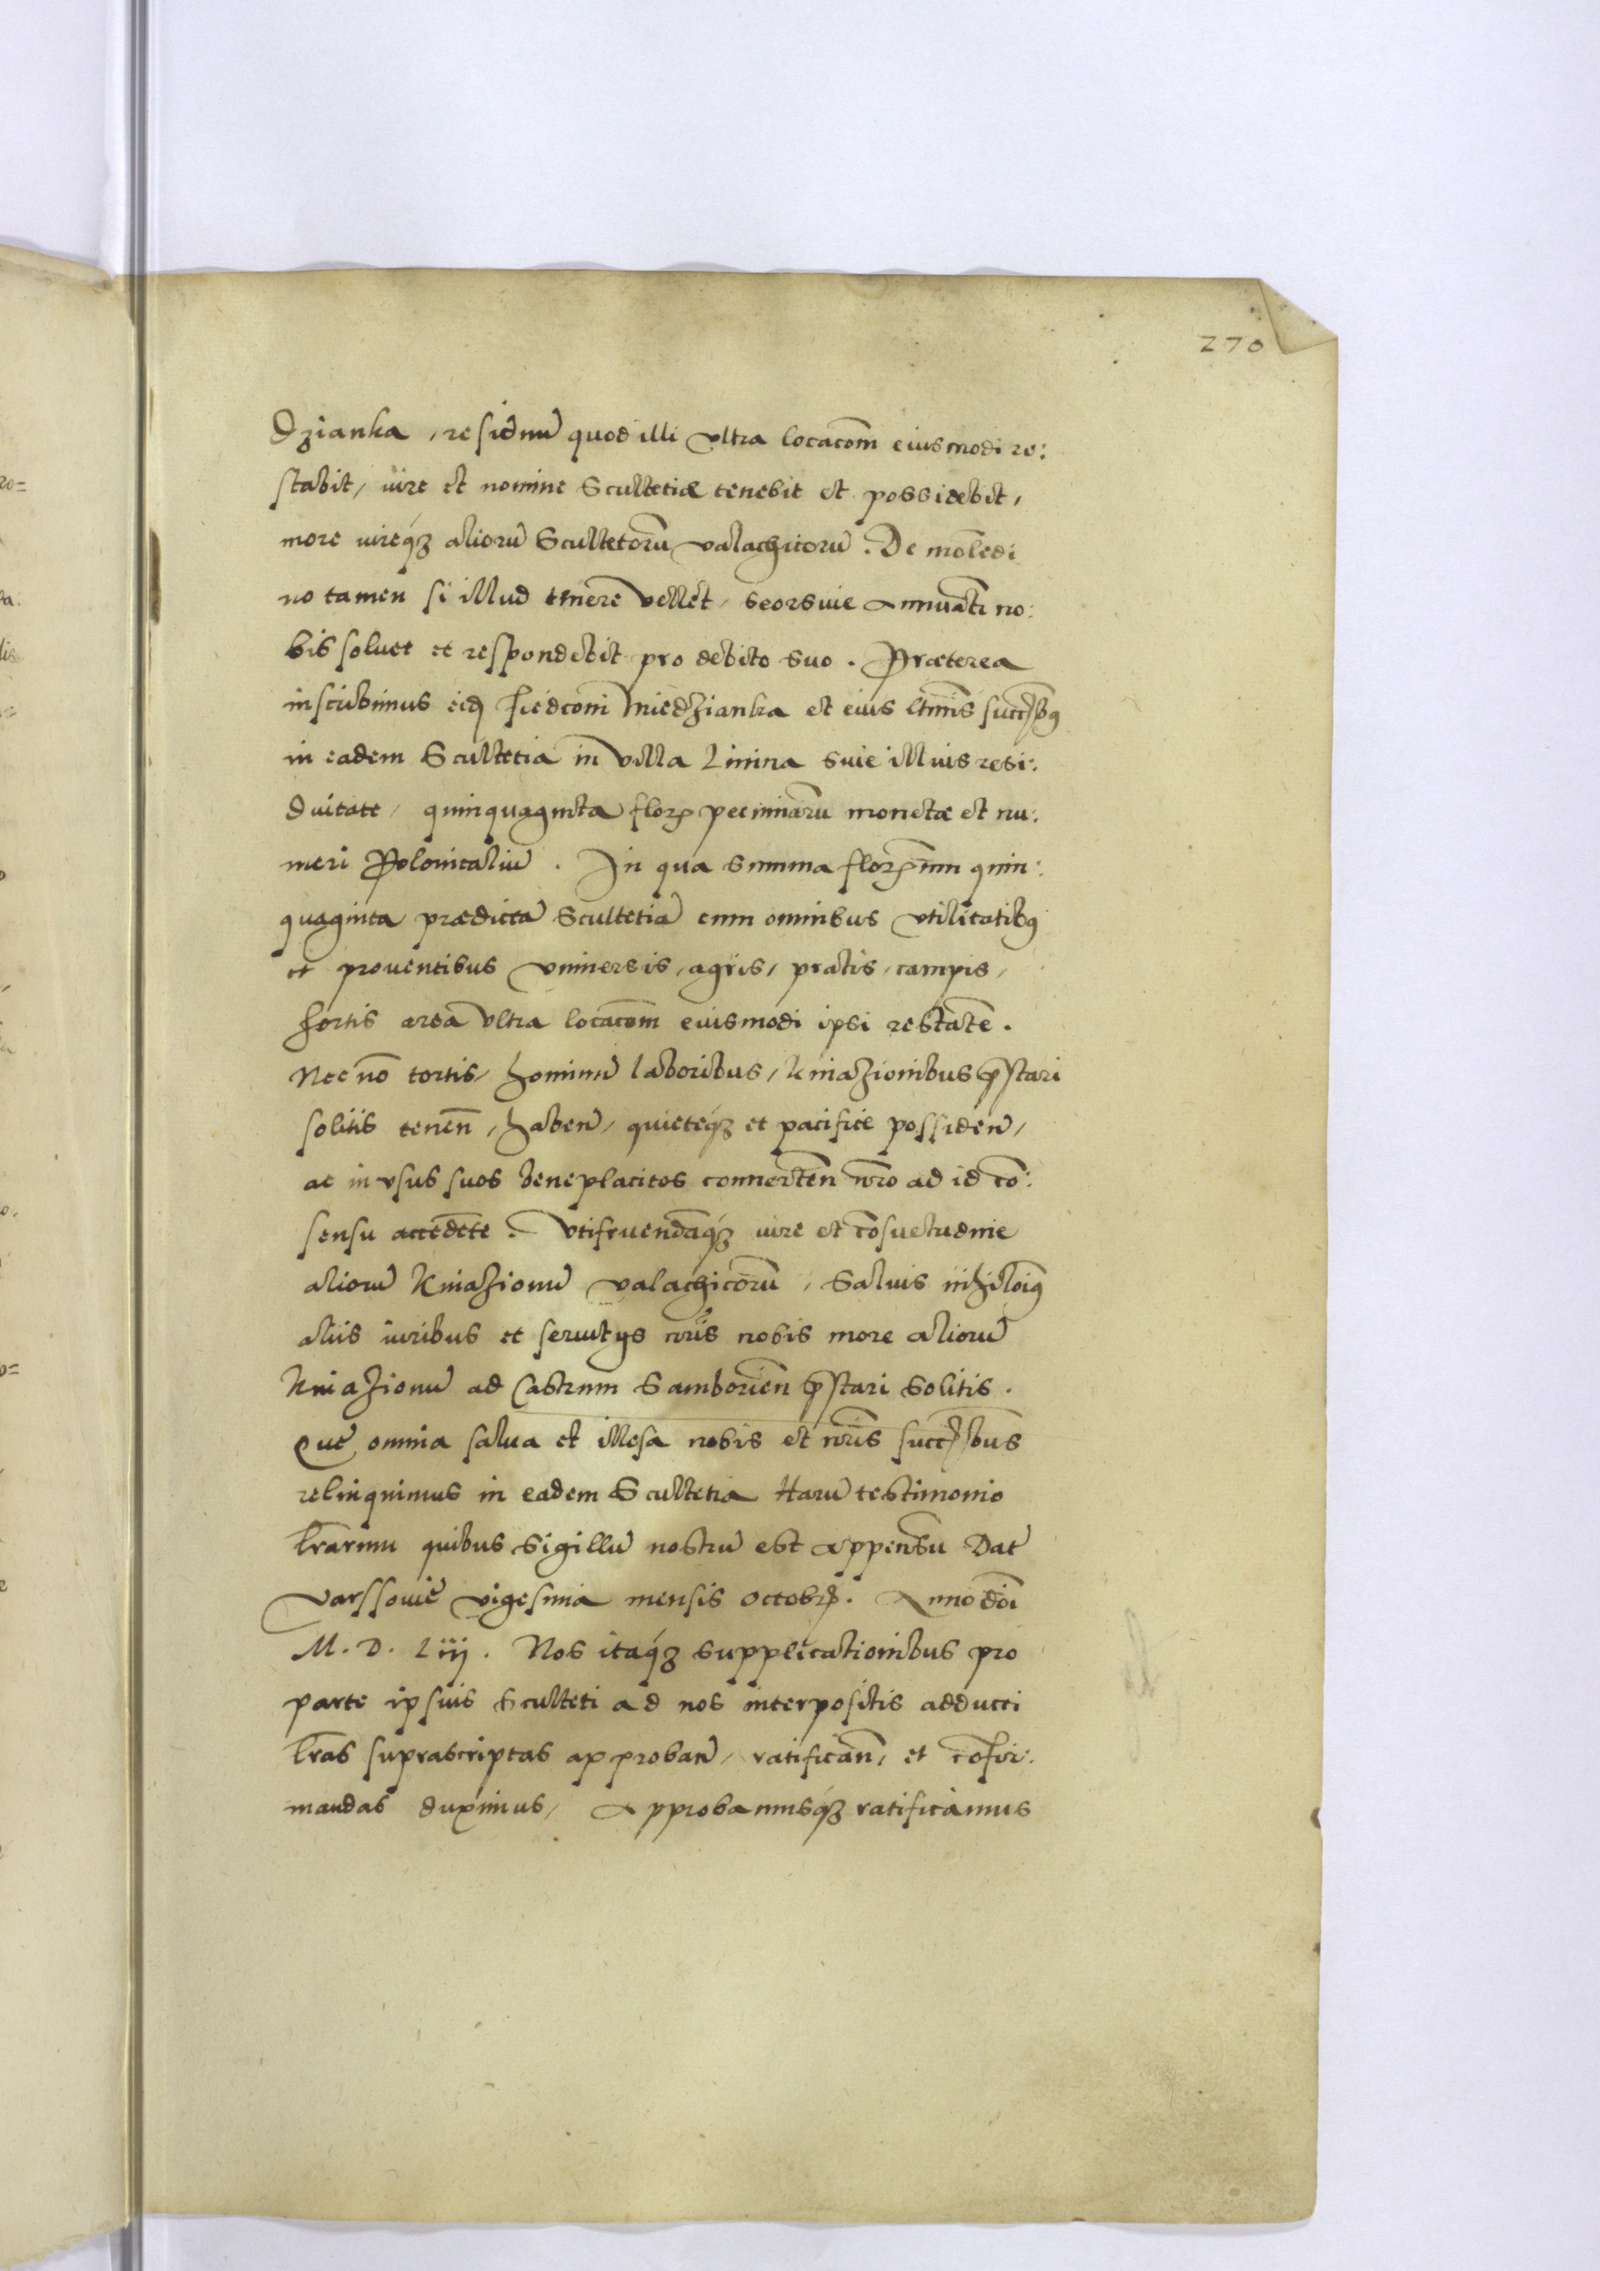 270
Dzianka, residuū quod illi vltra locacōm eiusmodi re:
stabit, iure et nomine Scultetiæ tenebit et possidebit,
more iureq́ʒ aliorū Scultetorū valachicorū. De molēdi
no tamen si illud tenere vellet, seorsiue Annuātī no:
bis soluet et respondebit pro debito suo. Præterea
inscribimus eidꝫ Fiedconi Miedzianka et eius ltimīs succꝭbꝰ
in eadem Scultetia in villa Linina siue illius resi:
duitate, quinquaginta florꝭ pecuniarū monetæ et nu:
meri Polonicaliū. In qua summa florꝭnum quin:
quaginta prædictā Scultetiā cum omnibus vtilitatibꝰ
et prouentibus vniuersis, agris, pratis, campis,
hortis area vltra locacōm eiusmodi ipsi restātē.
Nec nō tortis, hominū laboribus, Kniazionibus p̄stari
solitis tenen̄, haben̄, quieteq́ʒ et pacifice possiden̄,
ac in vsus suos beneplacitos conuerten̄ nr̄o ad id cō:
sensu accedēte. Vtifruendaq́ʒ iure et cōsuetudine
aliorū Kniazionū valachicorū, Saluis nihilōiꝰ
aliis iuribus et seruitys nr̄is nobis more aliorū
Kniazionū ad Castrum Samborien̄ p̄stari solitis.
Quę omnia salua et illesa nobis et nr̄is succꝭbus
relinquimus in eadem Scultetia Harū testimonio
lr̄arum quibus sigillū nostrū est appensū Dat̄
Varssouię vigesima mensis octobrꝭ. Anno dōi
M. D. Liij. Nos itaq́ʒ supplicationibus pro
parte ipsius Sculteti ad nos interpositis adducti
lr̄as suprascriptas approban̄, ratifican̄, et cōfir:
mandas duximus, Approbamusq́ʒ ratificamus